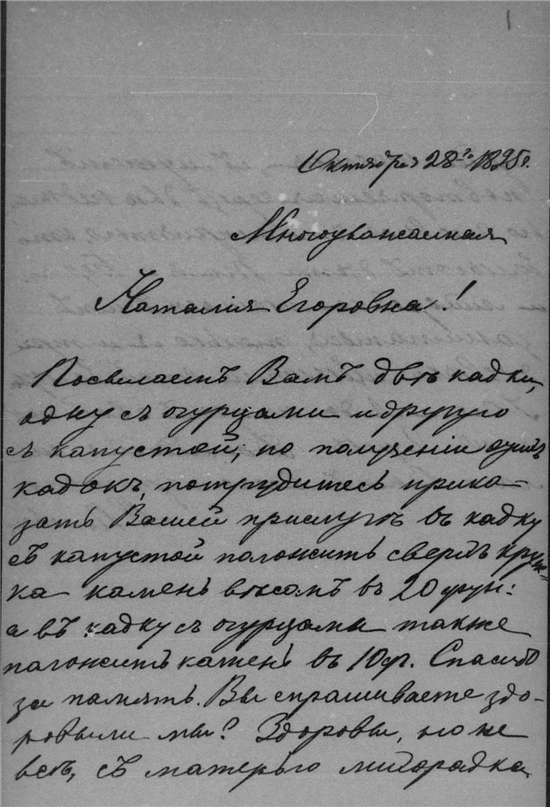 1
Октября 28го 1895г.
Многоуважаемая
Наталiя Егоровна!
Посылаемъ Вамъ двѣ кадки,
одну съ огурцами и другую
съ капустой, по полученiи
кадокъ, потрудитесь прика-
зать Вашей прислугѣ въ кадку
съ капустой положить сверхъ круж-
ка камень вѣсомъ въ 20 фун:
а въ кадку съ огурцами также
положить камень въ 10 ф. Спасибо
за память. Вы спрашиваете здо-
ровы ли мы? Здоровы, но не
всѣ, съ матерью лихорадка